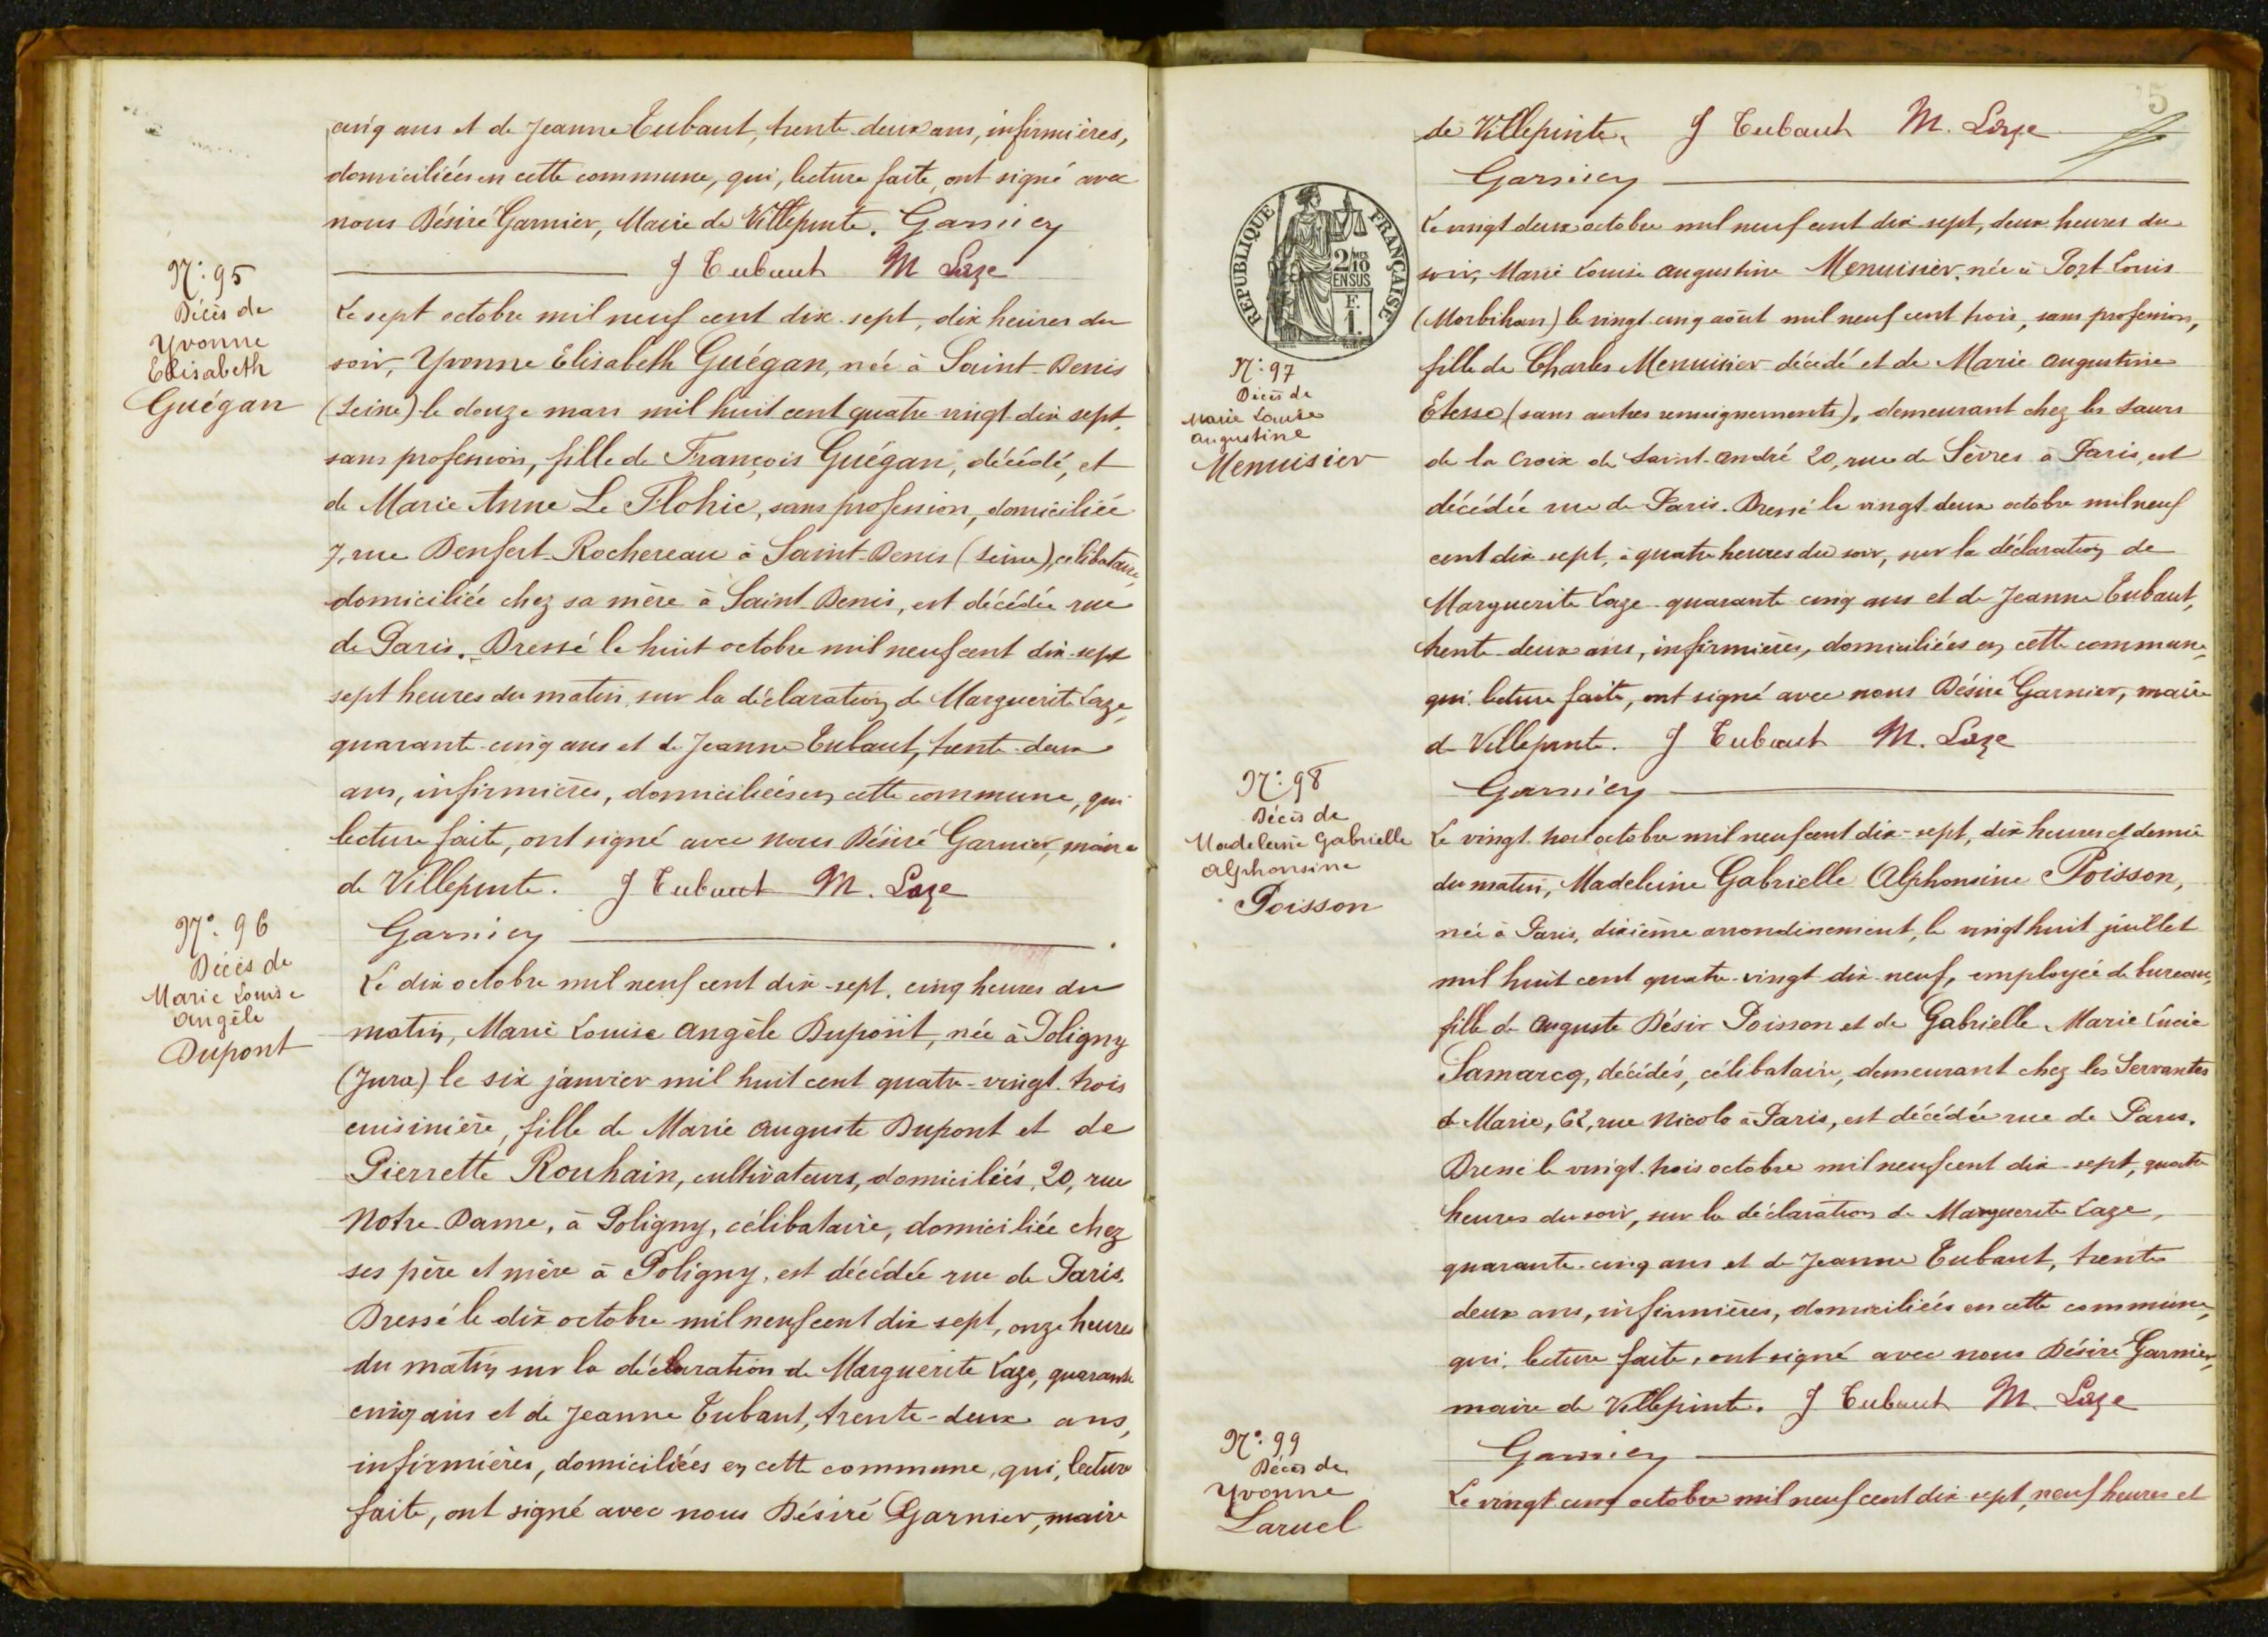 cinq ans et de Jeanne Tubaut, trente deux ans, infirmières,
domiciliées en cette commune, qui, lecture faite, ont signé avec
nous Désiré Garnier, Maire de Villepinte. Garnier
J Tubaut M Laze
N°: 95
Décès de
Yvonne
Elisabeth
Guégan
Le sept octobre mil neuf cent dix-sept, dix heures du
soir, Yvonne Elisabeth Guégan, née à Saint-Denis
(Seine) le douze mars mil huit cent quatre vingt dix sept,
sans profession, fille de François Guégan, décédé, et
de Marie Anne Le Flohic, sans profession, domiciliée
7, rue Denfert-Rochereau à Saint-Denis (Seine), célibataire,
domiciliée chez sa mère à Saint-Denis, est décédée rue
de Paris. Dressé le huit octobre mil neuf cent dix-sept
sept heures du matin, sur la déclaration de Marguerite Laze,
quarante-cinq ans et de Jeanne Tubaut, trente-deux
ans, infirmières, domiciliées en cette commune, qui
lecture faite, ont signé avec nous Désiré Garnier, maire
de Villepinte. J Tubaut M. Laze
Garnier
N°: 96
Décès de
Marie Louise
Angèle
Dupont
Le dix octobre mil neuf cent dix-sept, cinq heures du
matin, Marie Louise Angèle Dupont, née à Poligny
(Jura) le six janvier mil huit cent quatre-vingt-trois
cuisinière, fille de Marie Auguste Dupont et de
Pierrette Rouhain, cultivateurs, domiciliés, 20, rue
Notre-Dame, à Poligny, célibataire, domiciliée chez
ses père et mère à Poligny, est décédée rue de Paris.
Dressé le dix octobre mil neuf cent dix sept, onze heures
du matin sur la déclaration de Marguerite Laze, quarante
cinq ans et de Jeanne Tubaut, trente-deux ans,
infirmières, domiciliées en cette commune, qui, lecture
faite, ont signé avec nous Désiré Garnier, maire
5
de Villepinte. J Tubaut M. Laze
Garnier
REPUBLIQUE FRANÇAISE
2 MES
10
EN SUS
F.
1.
N°: 97
Décès de
Marie Louise
Augustine
Menuisier
Le vingt deux octobre mil neuf cent dix-sept, deux heures du
soir, Marie Louise Augustine Menuisier, née à Port Louis
(Morbihan) le vingt cinq août mil neuf cent trois, sans profession,
fille de Charles Menuisier décédé et de Marie Augustine
Etesse (sans autres renseignements), demeurant chez les Sœurs
de la Croix de Saint-André 20, rue de Sèvres à Paris, est
décédée rue de Paris. Dressé le vingt-deux octobre mil neuf
cent dix-sept, à quatre heures du soir, sur la déclaration de
Marguerite Laze quarante cinq ans et de Jeanne Tubaut,
trente-deux ans, infirmières, domiciliées en cette commune,
qui lecture faite, ont signé avec nous Désiré Garnier, maire
de Villepinte. J Tubaut M. Laze
Garnier
N°: 98
Décès de
Madeleine Gabrielle
Alphonsine
Poisson
Le vingt trois octobre mil neuf cent dix-sept, dix heures et demie
du matin, Madeleine Gabrielle Alphonsine Poisson,
née à Paris, dixième arrondissement, le vingt huit juillet
mil huit cent quatre-vingt-dix-neuf, employée de bureau,
fille de Auguste Désir Poisson et de Gabrielle Marie Lucie
Samarcq, décédés, célibataire, demeurant chez les Servantes
de Marie, 62, rue Nicolo à Paris, est décédée rue de Paris.
Dressé le vingt-trois octobre mil neuf cent dix-sept, quatre
heures du soir, sur la déclaration de Marguerite Laze,
quarante-cinq ans et de Jeanne Tubaut, trente
deux ans, infirmières, domiciliées en cette commune,
qui, lecture faite, ont signé avec nous Désiré Garnier,
maire de Villepinte. J Tubaut M. Laze
Garnier
N°: 99
Décès de
Yvonne
Laruel
Le vingt cinq octobre mil neuf cent dix sept, neuf heures et